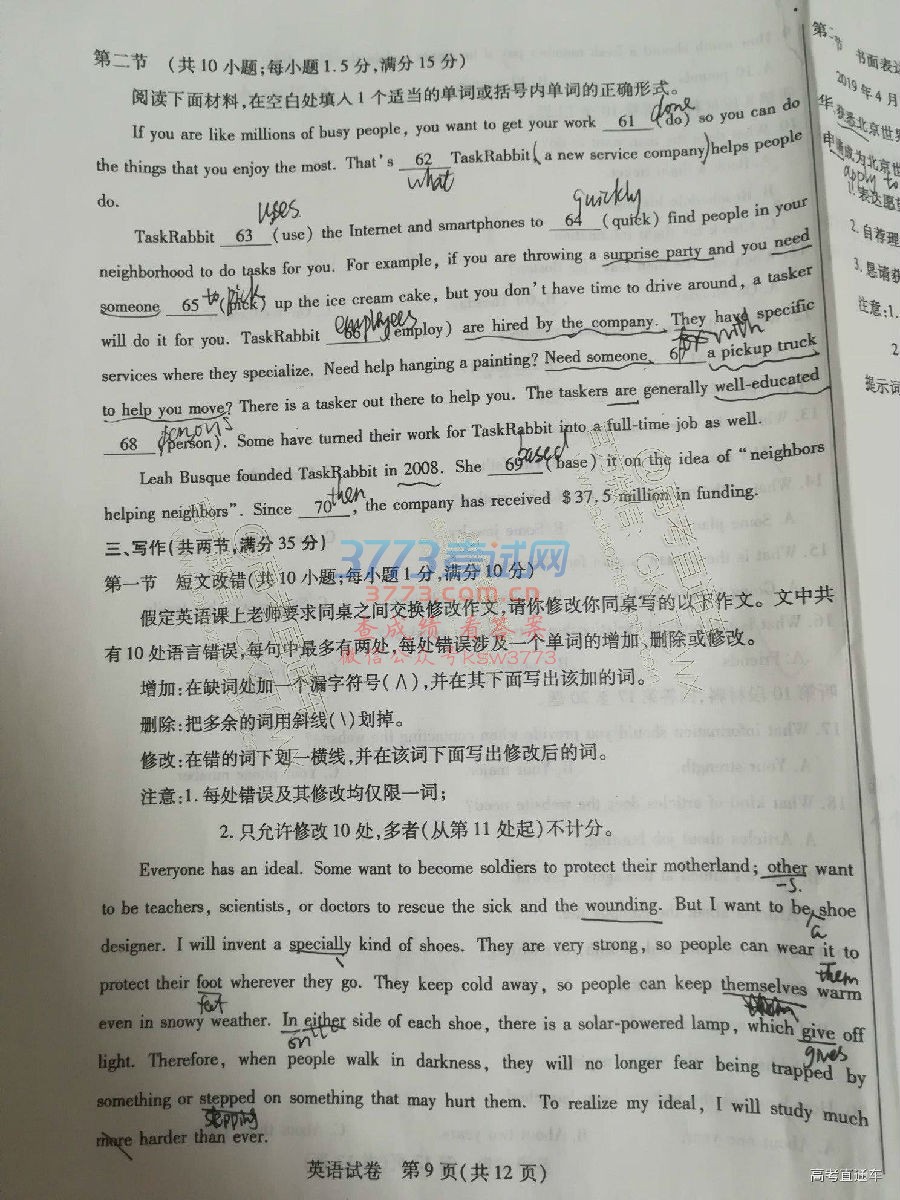 第二节 (共10小题;每小题1.5分,满分15分)
阅读下面材料,在空白处填入1个适当的单词或括号内单词的正确形式。
If you are like millions of busy people, you want to get your work 61 (do) so you can do
done
the things that you enjoy the most. That's 62 TaskRabbit (a new service company) helps people
what
do.
uses
quickly
TaskRabbit 63 (use) the Internet and smartphones to 64 (quick) find people in your
neighborhood to do tasks for you. For example, if you are throwing a surprise party and you need
someone 65 (pick) up the ice cream cake, but you don't have time to drive around, a tasker
to pick
will do it for you. TaskRabbit 66 (employ) are hired by the company. They have specific
employees
services where they specialize. Need help hanging a painting? Need someone 67 a pickup truck
with
to help you move? There is a tasker out there to help you. The taskers are generally well-educated
68 (person). Some have turned their work for TaskRabbit into a full-time job as well.
Leah Busque founded TaskRabbit in 2008. She 69 (base) it on the idea of "neighbors
based
helping neighbors". Since 70, the company has received $37.5 million in funding.
then
三、写作(共两节,满分35分)
第一节 短文改错(共10小题;每小题1分,满分10分)
假定英语课上老师要求同桌之间交换修改作文,请你修改你同桌写的以下作文。文中共
有10处语言错误,每句中最多有两处,每处错误涉及一个单词的增加、删除或修改。
增加:在缺词处加一个漏字符号(∧),并在其下面写出该加的词。
删除:把多余的词用斜线(\)划掉。
修改:在错的词下划一横线,并在该词下面写出修改后的词。
注意:1. 每处错误及其修改均仅限一词;
2. 只允许修改10处,多者(从第11处起)不计分。
Everyone has an ideal. Some want to become soldiers to protect their motherland; other want
-s.
to be teachers, scientists, or doctors to rescue the sick and the wounding. But I want to be shoe
a
designer. I will invent a specially kind of shoes. They are very strong, so people can wear it to
them
protect their foot wherever they go. They keep cold away, so people can keep themselves warm
feet
them
even in snowy weather. In either side of each shoe, there is a solar-powered lamp, which give off
on
gives
light. Therefore, when people walk in darkness, they will no longer fear being trapped by
something or stepped on something that may hurt them. To realize my ideal, I will study much
stepping
more harder than ever.
英语试卷 第9页(共12页)
3773考试网
3773.com.cn
查成绩 看答案
微信公众号ksw3773
书面表达
2019年4月
华
北京世界
申请成为北京世
apply to
1. 表达愿望
2. 自荐理
3. 恳请获
注意:1.
2
提示词
高考直通车